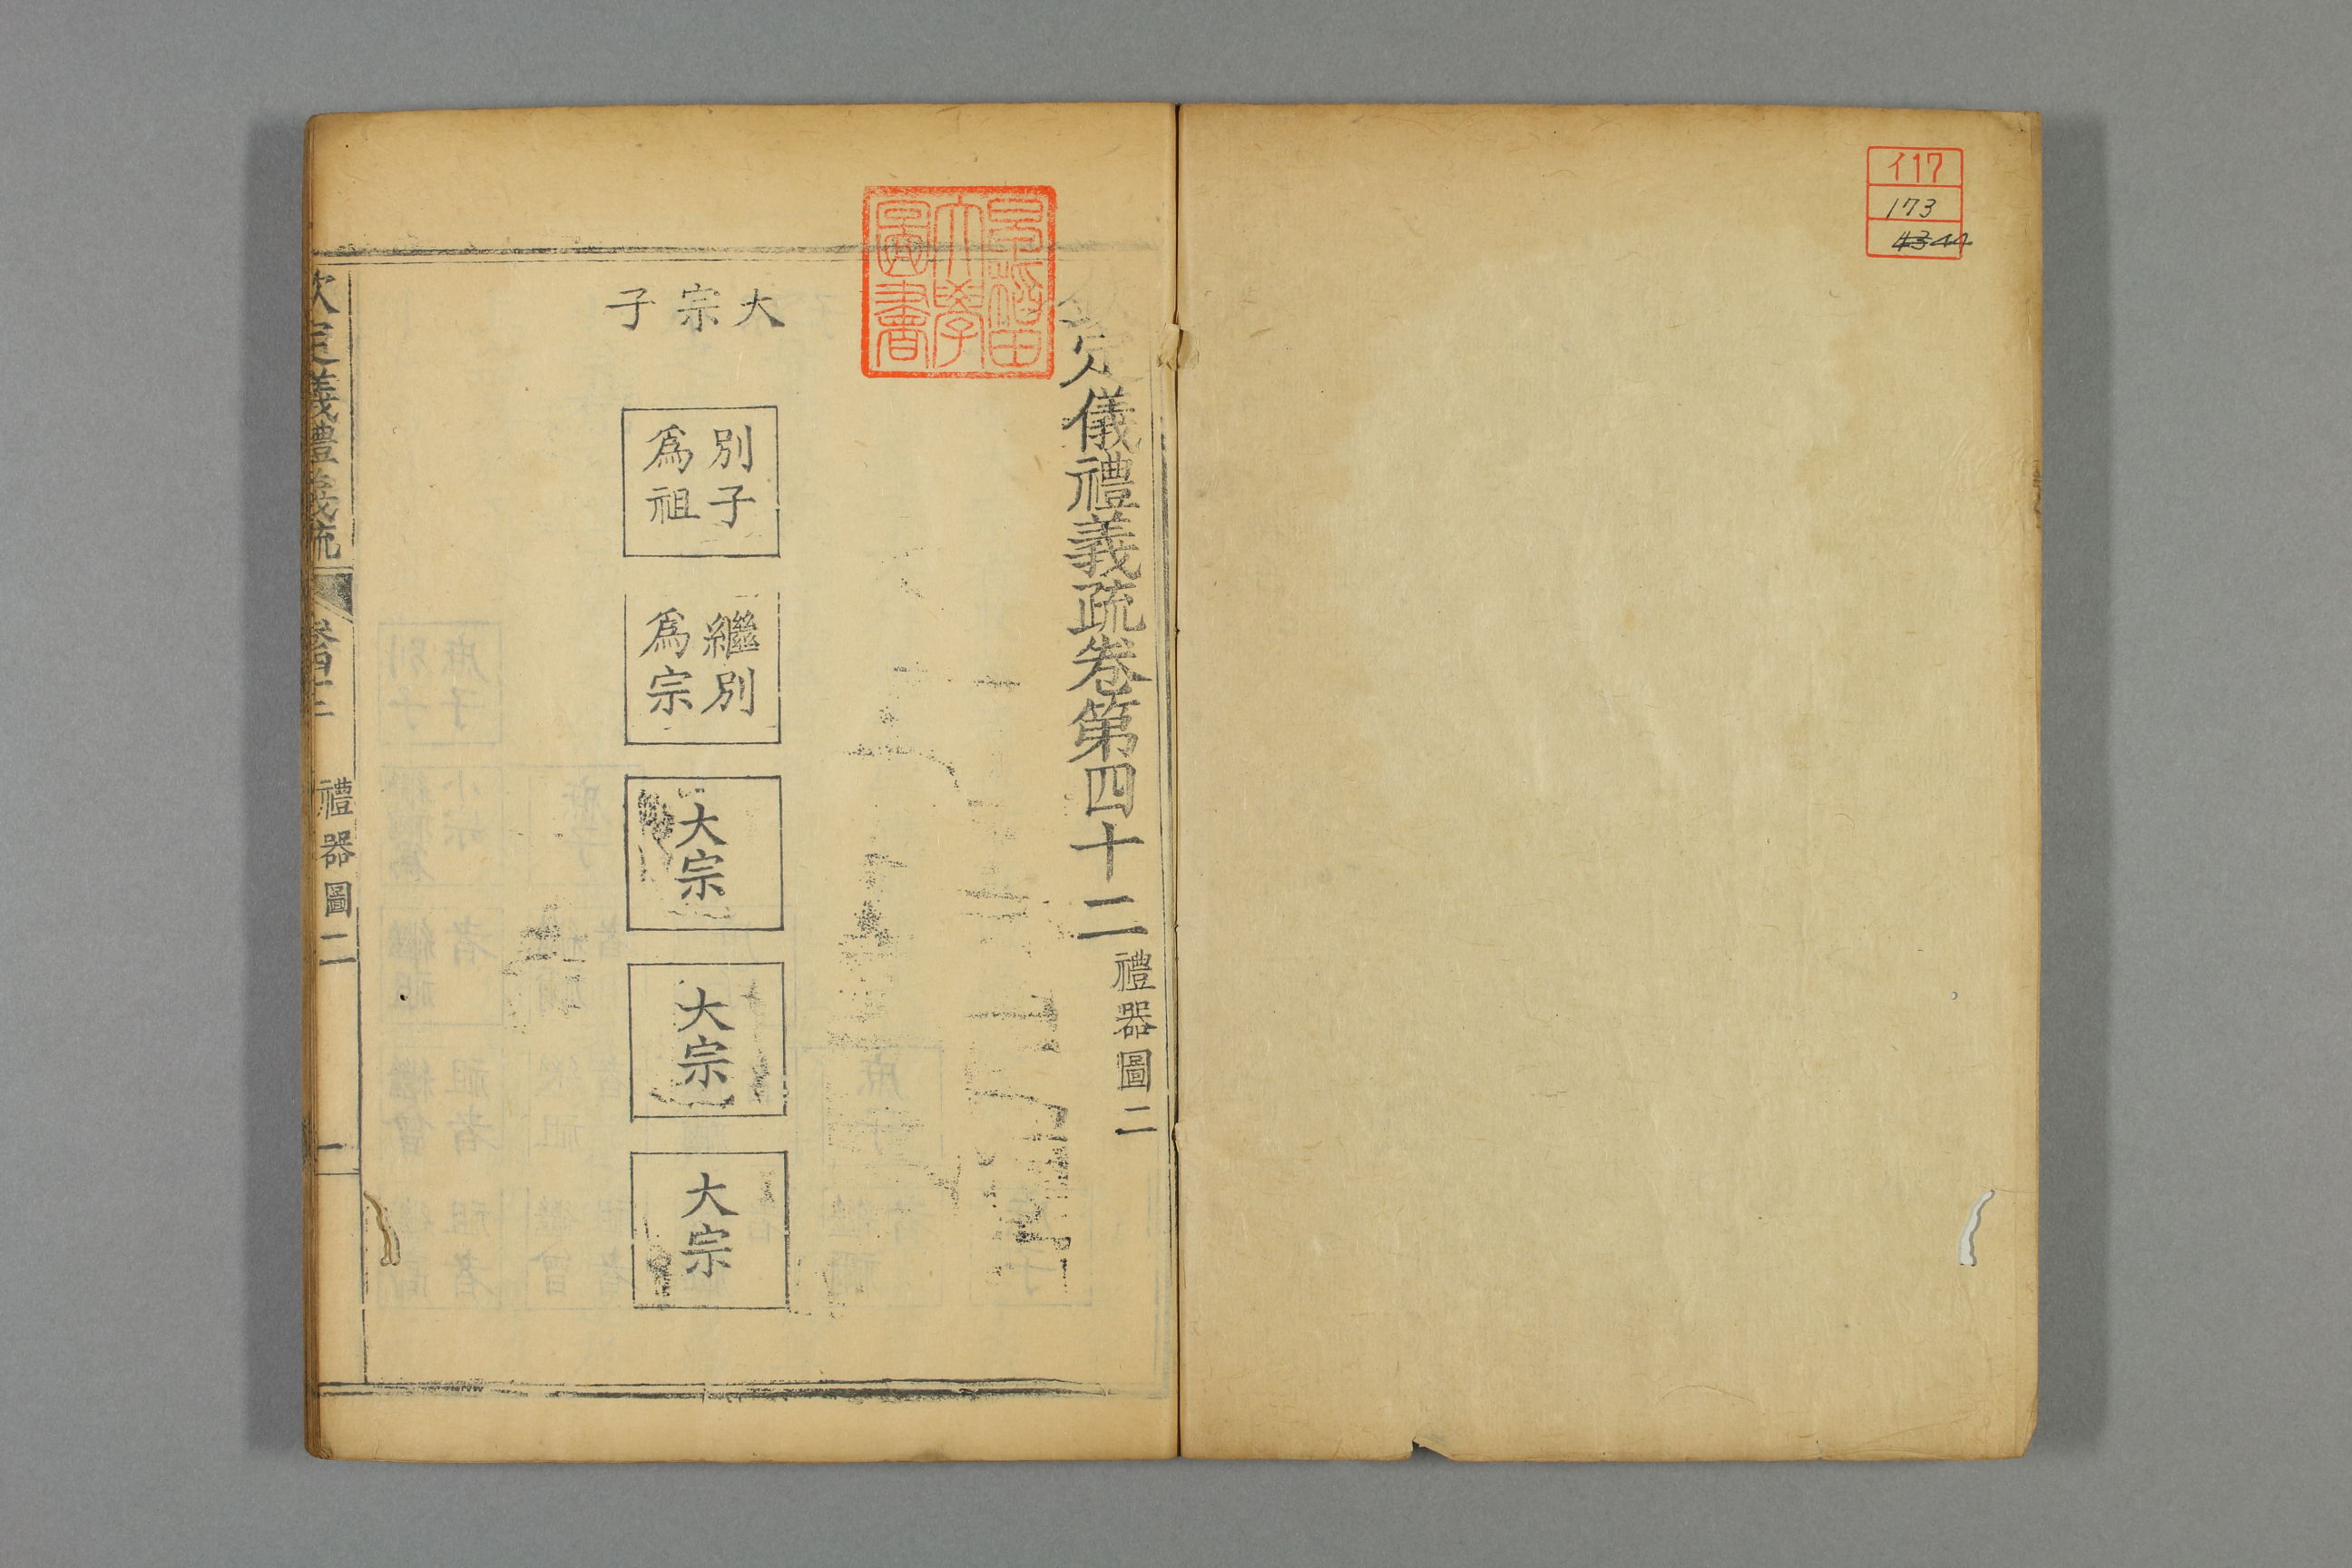 イ17
173
4344
欽定儀禮義疏卷第四十二 禮器圖二
早稻田
大學
圖書
大宗子
別子
爲祖
繼別
爲宗
大宗
大宗
大宗
欽定儀禮義疏 卷四十二 禮器圖二 一